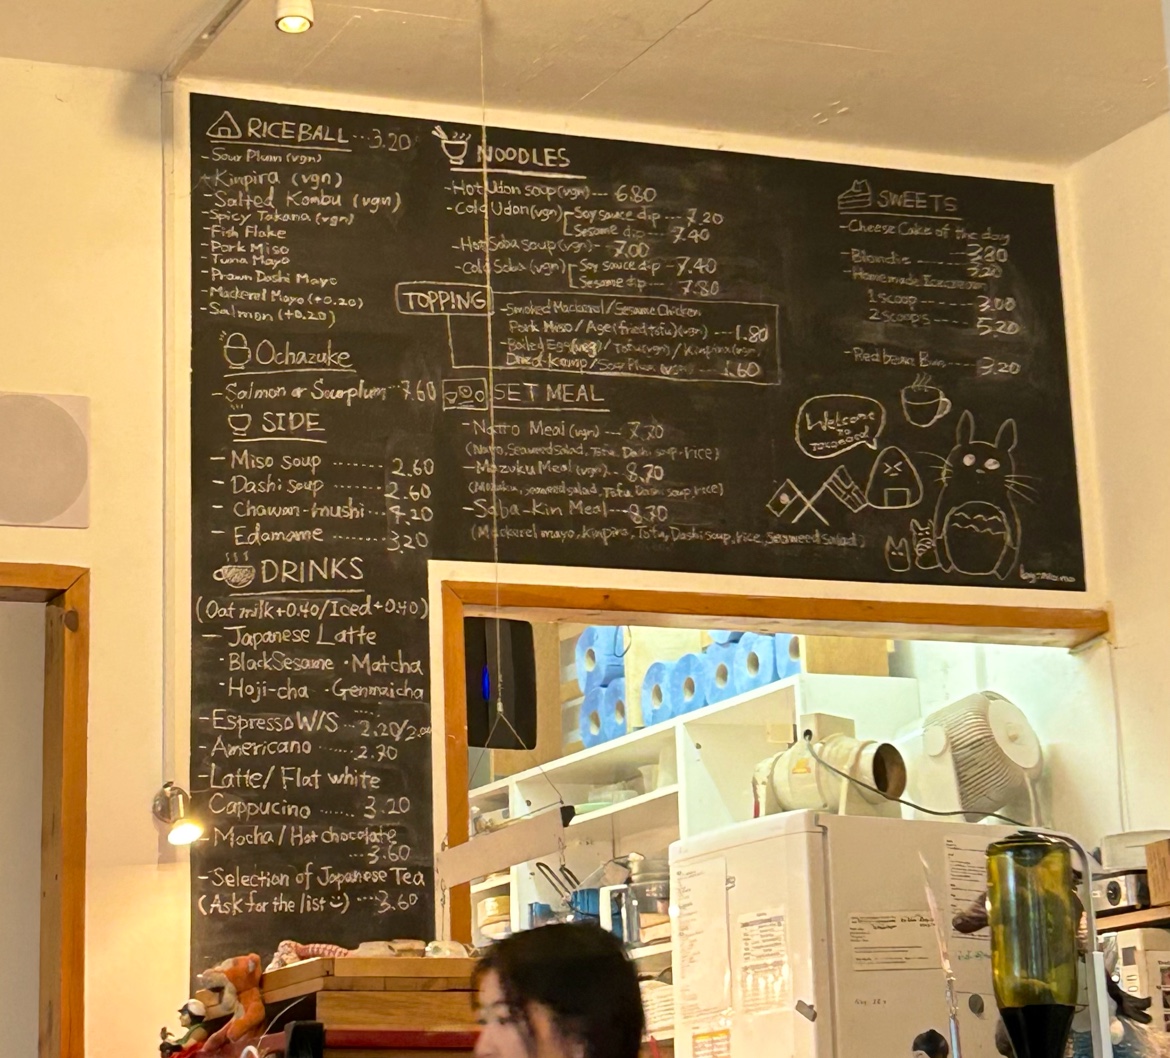 RICEBALL ... 3.20
- Sour Plum (vgn)
- Kinpira (vgn)
- Salted Kombu (vgn)
- Spicy Takana (vgn)
- Fish Flake
- Pork Miso
- Tuna Mayo
- Prawn Dashi Mayo
- Mackerel Mayo (+0.20)
- Salmon (+0.20)
Ochazuke
- Salmon or Sourplum ... 7.60
SIDE
- Miso soup ........ 2.60
- Dashi soup ...... 2.60
- Chawan-mushi ... 4.20
- Edamame ...... 3.20
DRINKS
(Oat milk +0.40/Iced +0.40)
- Japanese Latte
· Black Sesame · Matcha
· Hoji-cha · Genmaicha
- Espresso W/S ... 2.20/
- Americano ...... 2.70
- Latte/ Flat white
Cappucino ...... 3.20
- Mocha / Hot chocolate
... 3.60
- Selection of Japanese Tea
(Ask for the list) .... 3.60
NOODLES
- Hot Udon soup (vgn) --- 6.80
- Cold Udon (vgn) Soy sauce dip --- 7.20
Sesame dip --- 7.40
- Hot Soba soup (vgn) -- 7.00
- Cold Soba (vgn) Soy sauce dip -- 7.40
Sesame dip --- 7.80
TOPPING
- Smoked Mackerel / Sesame Chicken
Pork Miso / Age (fried tofu) (vgn) --- 1.80
- Boiled Egg (veg) / Tofu (vgn) / Kinpira (vgn)
/ Sour Plum (vgn) --- 1.60
SET MEAL
- Natto Meal (vgn) --- 7.70
(Natto, Seaweed salad, Tofu, Dashi soup, rice)
- Mozuku Meal (vgn) --- 8.70
(Mozuku, seaweed salad, Tofu, Dashi soup, rice)
- Saba-Kin Meal -- 8.70
(Mackerel mayo, kinpira, Tofu, Dashi soup, rice, Seaweed Salad)
SWEETS
- Cheese Cake of the day
- Blondie ------ 3.20
- Homemade Icecream
1 scoop ----- 3.00
2 scoops ---- 5.20
- Red bean Bun --- 3.20
Welcome
to